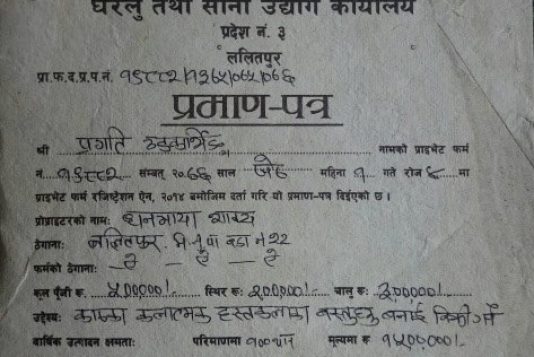 घरेलु तथा साना उद्योग कार्यालय
प्रदेश नं. ३
ललितपुर
प्रा.फ.द.प्र.प.नं. १९८८२/१३६५/०६५/०६६
प्रमाण-पत्र
श्री प्रगति नामको प्राइभेट फर्म
नं. १९८८२ सम्वत् २०६६ साल जेठ महिना १ गते रोज मा
प्राइभेट फर्म रजिष्ट्रेशन ऐन, २०१४ बमोजिम दर्ता गरि यो प्रमाण-पत्र दिईएको छ।
प्रोप्राइटरको नाम: धनमाया शाक्य
ठेगाना: ललितपुर वडा नं २२
फर्मको ठेगाना:
कूल पूँजी रु. ५०००००।- स्थिर रु. २०००००।- चालु रु. ३०००००।-
उद्देश्य: काष्ठका कलात्मक हस्तकलाका बस्तुहरु बनाई बिक्री गर्ने
बार्षिक उत्पादन क्षमता: परिमाणमा १०० थान मूल्यमा रु